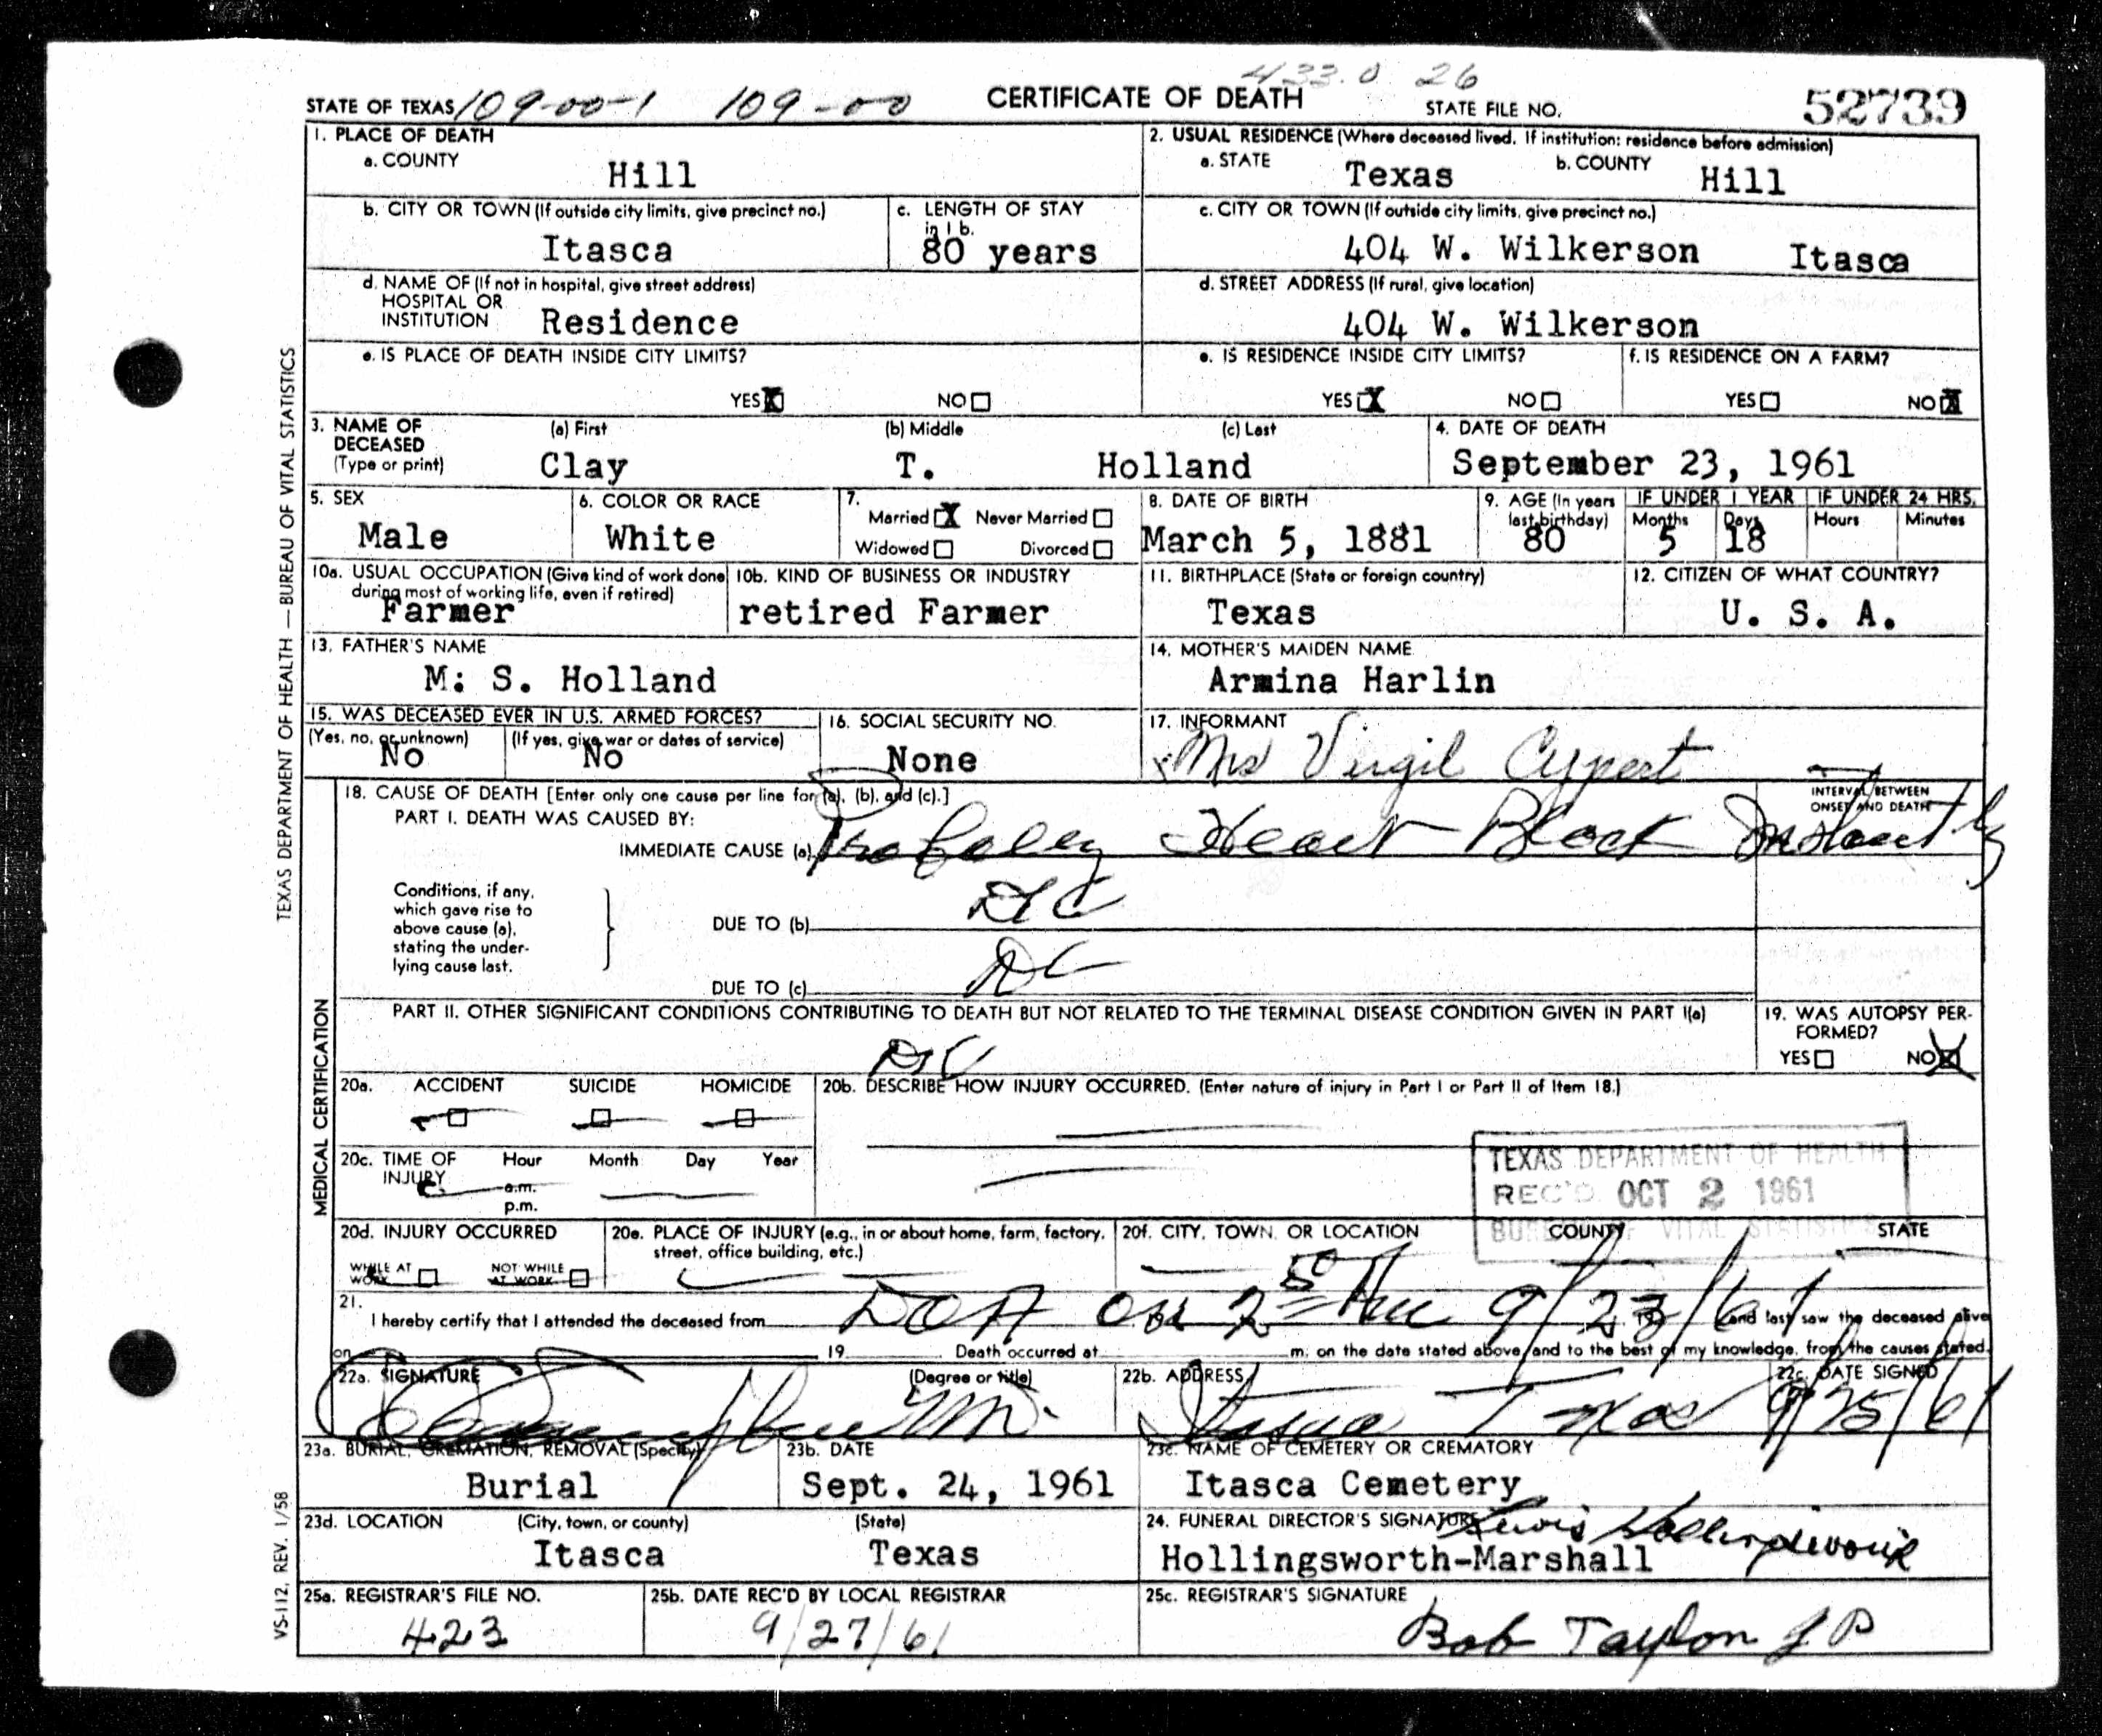 433.0 26
STATE OF TEXAS 109-00-1 109-00 CERTIFICATE OF DEATH STATE FILE NO. 52739
1. PLACE OF DEATH
a. COUNTY
Hill
2. USUAL RESIDENCE (Where deceased lived. If institution: residence before admission)
a. STATE Texas b. COUNTY Hill
b. CITY OR TOWN (If outside city limits, give precinct no.)
Itasca
c. LENGTH OF STAY
in 1 b.
80 years
c. CITY OR TOWN (If outside city limits, give precinct no.)
404 W. Wilkerson Itasca
d. NAME OF (If not in hospital, give street address)
HOSPITAL OR
INSTITUTION Residence
d. STREET ADDRESS (If rural, give location)
404 W. Wilkerson
e. IS PLACE OF DEATH INSIDE CITY LIMITS?
YES X NO
e. IS RESIDENCE INSIDE CITY LIMITS?
YES X NO
f. IS RESIDENCE ON A FARM?
YES NO X
3. NAME OF
DECEASED
(Type or print)
(a) First (b) Middle (c) Last
Clay T. Holland
4. DATE OF DEATH
September 23, 1961
5. SEX
Male
6. COLOR OR RACE
White
7.
Married X Never Married
Widowed Divorced
8. DATE OF BIRTH
March 5, 1881
9. AGE (In years
last birthday)
80
IF UNDER 1 YEAR
Months Days
5 18
IF UNDER 24 HRS.
Hours Minutes
10a. USUAL OCCUPATION (Give kind of work done
during most of working life, even if retired)
Farmer
10b. KIND OF BUSINESS OR INDUSTRY
retired Farmer
11. BIRTHPLACE (State or foreign country)
Texas
12. CITIZEN OF WHAT COUNTRY?
U. S. A.
13. FATHER'S NAME
M: S. Holland
14. MOTHER'S MAIDEN NAME
Armina Harlin
15. WAS DECEASED EVER IN U.S. ARMED FORCES?
(Yes, no, or unknown) (If yes, give war or dates of service)
No No
16. SOCIAL SECURITY NO.
None
17. INFORMANT
Mrs Virgil Cypert
18. CAUSE OF DEATH [Enter only one cause per line for (a), (b), and (c).]
PART I. DEATH WAS CAUSED BY:
IMMEDIATE CAUSE (a) Probably Heart Block
INTERVAL BETWEEN
ONSET AND DEATH
Instantly
Conditions, if any,
which gave rise to
above cause (a),
stating the under-
lying cause last.
DUE TO (b)
DUE TO (c)
PART II. OTHER SIGNIFICANT CONDITIONS CONTRIBUTING TO DEATH BUT NOT RELATED TO THE TERMINAL DISEASE CONDITION GIVEN IN PART I(a)
19. WAS AUTOPSY PER-
FORMED?
YES NO X
20a. ACCIDENT SUICIDE HOMICIDE
20b. DESCRIBE HOW INJURY OCCURRED. (Enter nature of injury in Part I or Part II of Item 18.)
20c. TIME OF
INJURY
Hour Month Day Year
a.m.
p.m.
TEXAS DEPARTMENT OF HEALTH
REC'D OCT 2 1961
BUREAU OF VITAL STATISTICS
20d. INJURY OCCURRED
WHILE AT
WORK
NOT WHILE
AT WORK
20e. PLACE OF INJURY (e.g., in or about home, farm, factory,
street, office building, etc.)
20f. CITY, TOWN, OR LOCATION COUNTY STATE
21.
I hereby certify that I attended the deceased from DOA on 9/23/61 and last saw the deceased alive
on 19 Death occurred at m. on the date stated above, and to the best of my knowledge, from the causes stated.
22a. SIGNATURE (Degree or title)
22b. ADDRESS
Itasca Texas
22c. DATE SIGNED
9/25/61
23a. BURIAL, CREMATION, REMOVAL (Specify)
Burial
23b. DATE
Sept. 24, 1961
23c. NAME OF CEMETERY OR CREMATORY
Itasca Cemetery
23d. LOCATION (City, town, or county) (State)
Itasca Texas
24. FUNERAL DIRECTOR'S SIGNATURE Lewis Hollingsworth
Hollingsworth-Marshall
25a. REGISTRAR'S FILE NO.
423
25b. DATE REC'D BY LOCAL REGISTRAR
9/27/61
25c. REGISTRAR'S SIGNATURE
Bob Taylor J P
TEXAS DEPARTMENT OF HEALTH — BUREAU OF VITAL STATISTICS
MEDICAL CERTIFICATION
VS-112, REV. 1/58